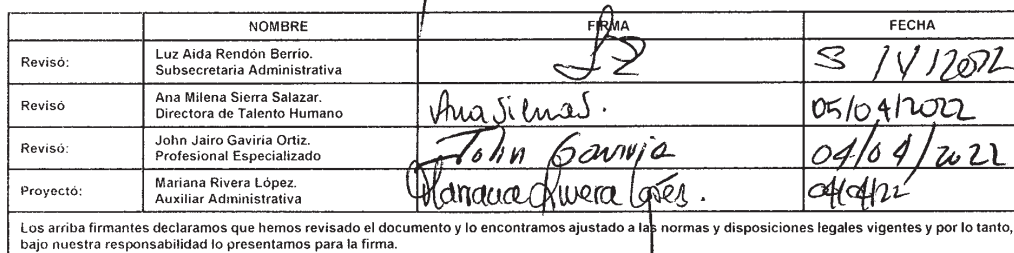 NOMBRE FIRMA FECHA
Revisó: Luz Aida Rendón Berrio.
Subsecretaria Administrativa 5 / IV / 2022
Revisó Ana Milena Sierra Salazar.
Directora de Talento Humano 05/04/2022
Revisó: John Jairo Gaviria Ortiz.
Profesional Especializado John Gaviria 04/04/2022
Proyectó: Mariana Rivera López.
Auxiliar Administrativa Mariana Rivera López. 04/04/22
Los arriba firmantes declaramos que hemos revisado el documento y lo encontramos ajustado a las normas y disposiciones legales vigentes y por lo tanto,
bajo nuestra responsabilidad lo presentamos para la firma.